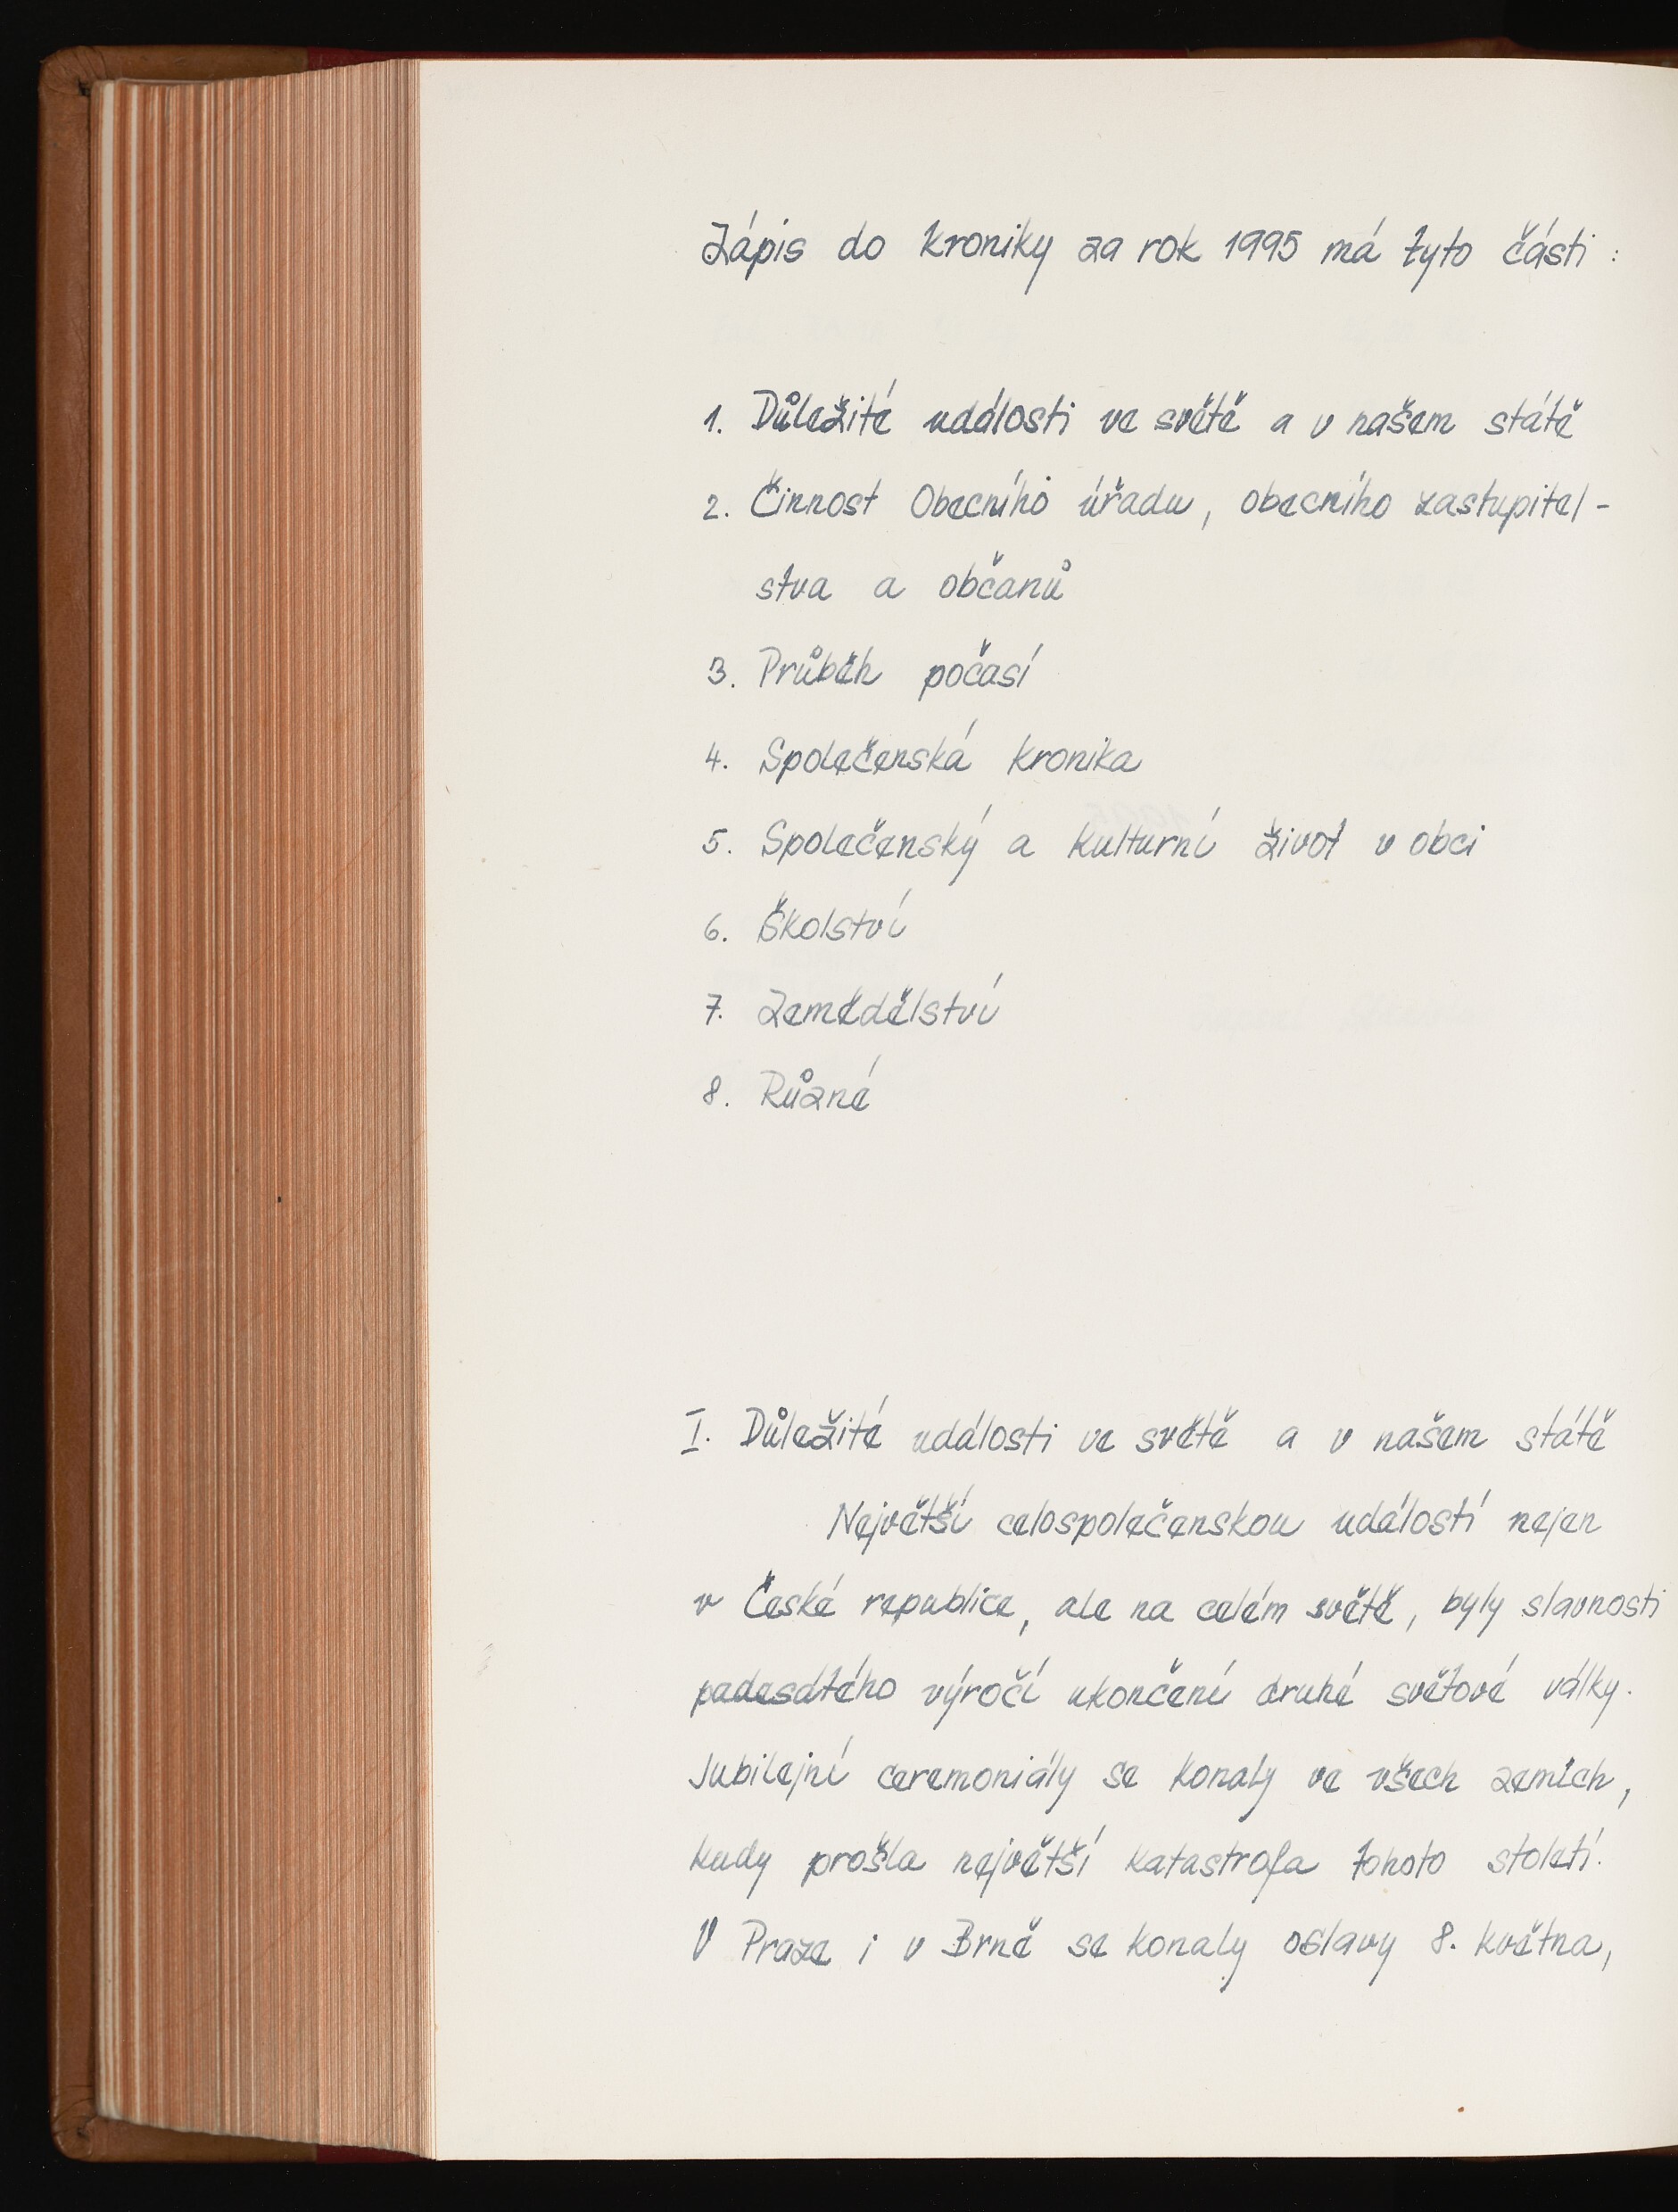 Zápis do kroniky za rok 1995 má tyto části :
1. Důležité události ve světě a v našem státě
2. Činnost Obecního úřadu, obecního zastupitel -
stva a občanů
3. Průběh počasí
4. Společenská kronika
5. Společenský a kulturní život v obci
6. Školství
7. Zemědělství
8. Různé
I. Důležité události ve světě a v našem státě
Největší celospolečenskou událostí nejen
v České republice, ale na celém světě, byly slavnosti
padesátého výročí ukončení druhé světové války.
Jubilejní ceremoniály se konaly ve všech zemích,
kudy prošla největší katastrofa tohoto století.
V Praze i v Brně se konaly oslavy 8. května,